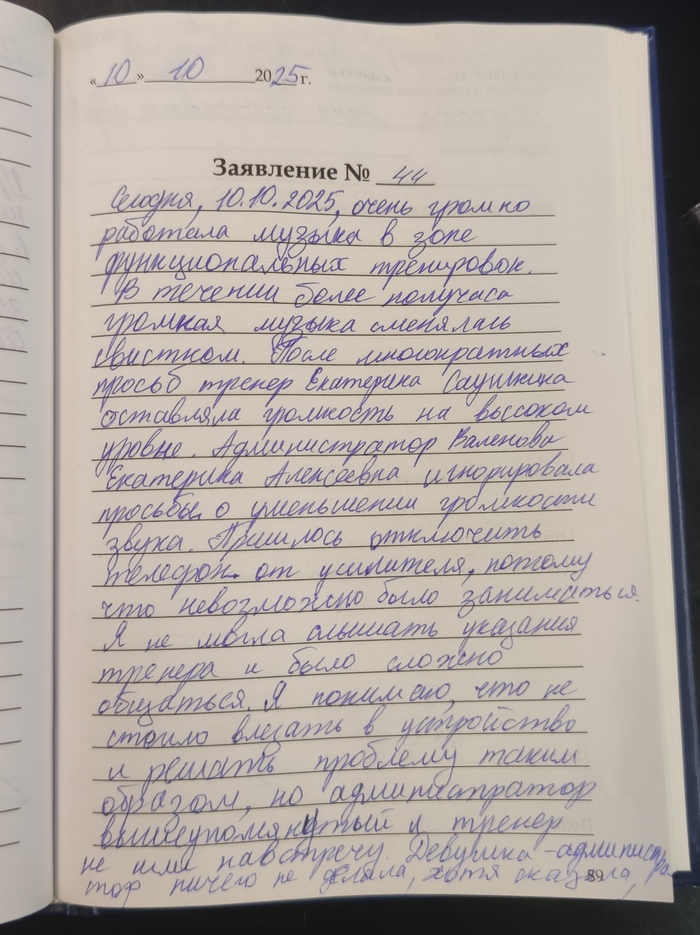 «10» 10 2025 г.
Заявление № 44
Сегодня, 10.10.2025, очень громко
работала музыка в зоне
функциональных тренировок.
В течении более получаса
громкая музыка сменялась
свистком. После многократных
просьб тренер Екатерина Саушкина
оставляла громкость на высоком
уровне. Администратор Валенова
Екатерина Алексеевна игнорировала
просьбы о уменьшении громкости
звука. Пришлось отключить
телефон от усилителя, потому
что невозможно было заниматься.
Я не могла слышать указания
тренера и было сложно
общаться. Я понимаю, что не
стоило влезать в устройство
и решать проблему таким
образом, но администратор
вышеупомянутый и тренер
не шли навстречу. Девушка-администра
тор ничего не делала, хотя сказала,
89